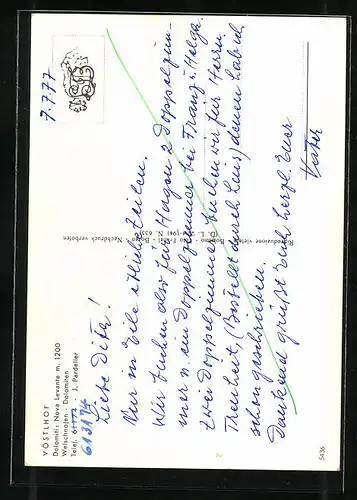 VÖSTLHOF
Dolomiti: Nova Levante m. 1200
Welschnofen - Dolomiten
Telef. 61772 - J. Pardeller
613174
7.7.77
Liebe Dita!
Nur in Eile einige Zeilen.
Wir buchen also für Hagen 2 Doppelzim-
mer u. ein Doppelzimmer bei Franz u. Helga.
zwei Doppelzimmer buchen wir für Herrn
(Bestellt durch Leus) denen hab ich
schon geschrieben.
Dankend grüßt Euch herzl. Euer
Vater
Riproduzione vietata - Nachdruck verboten
5436